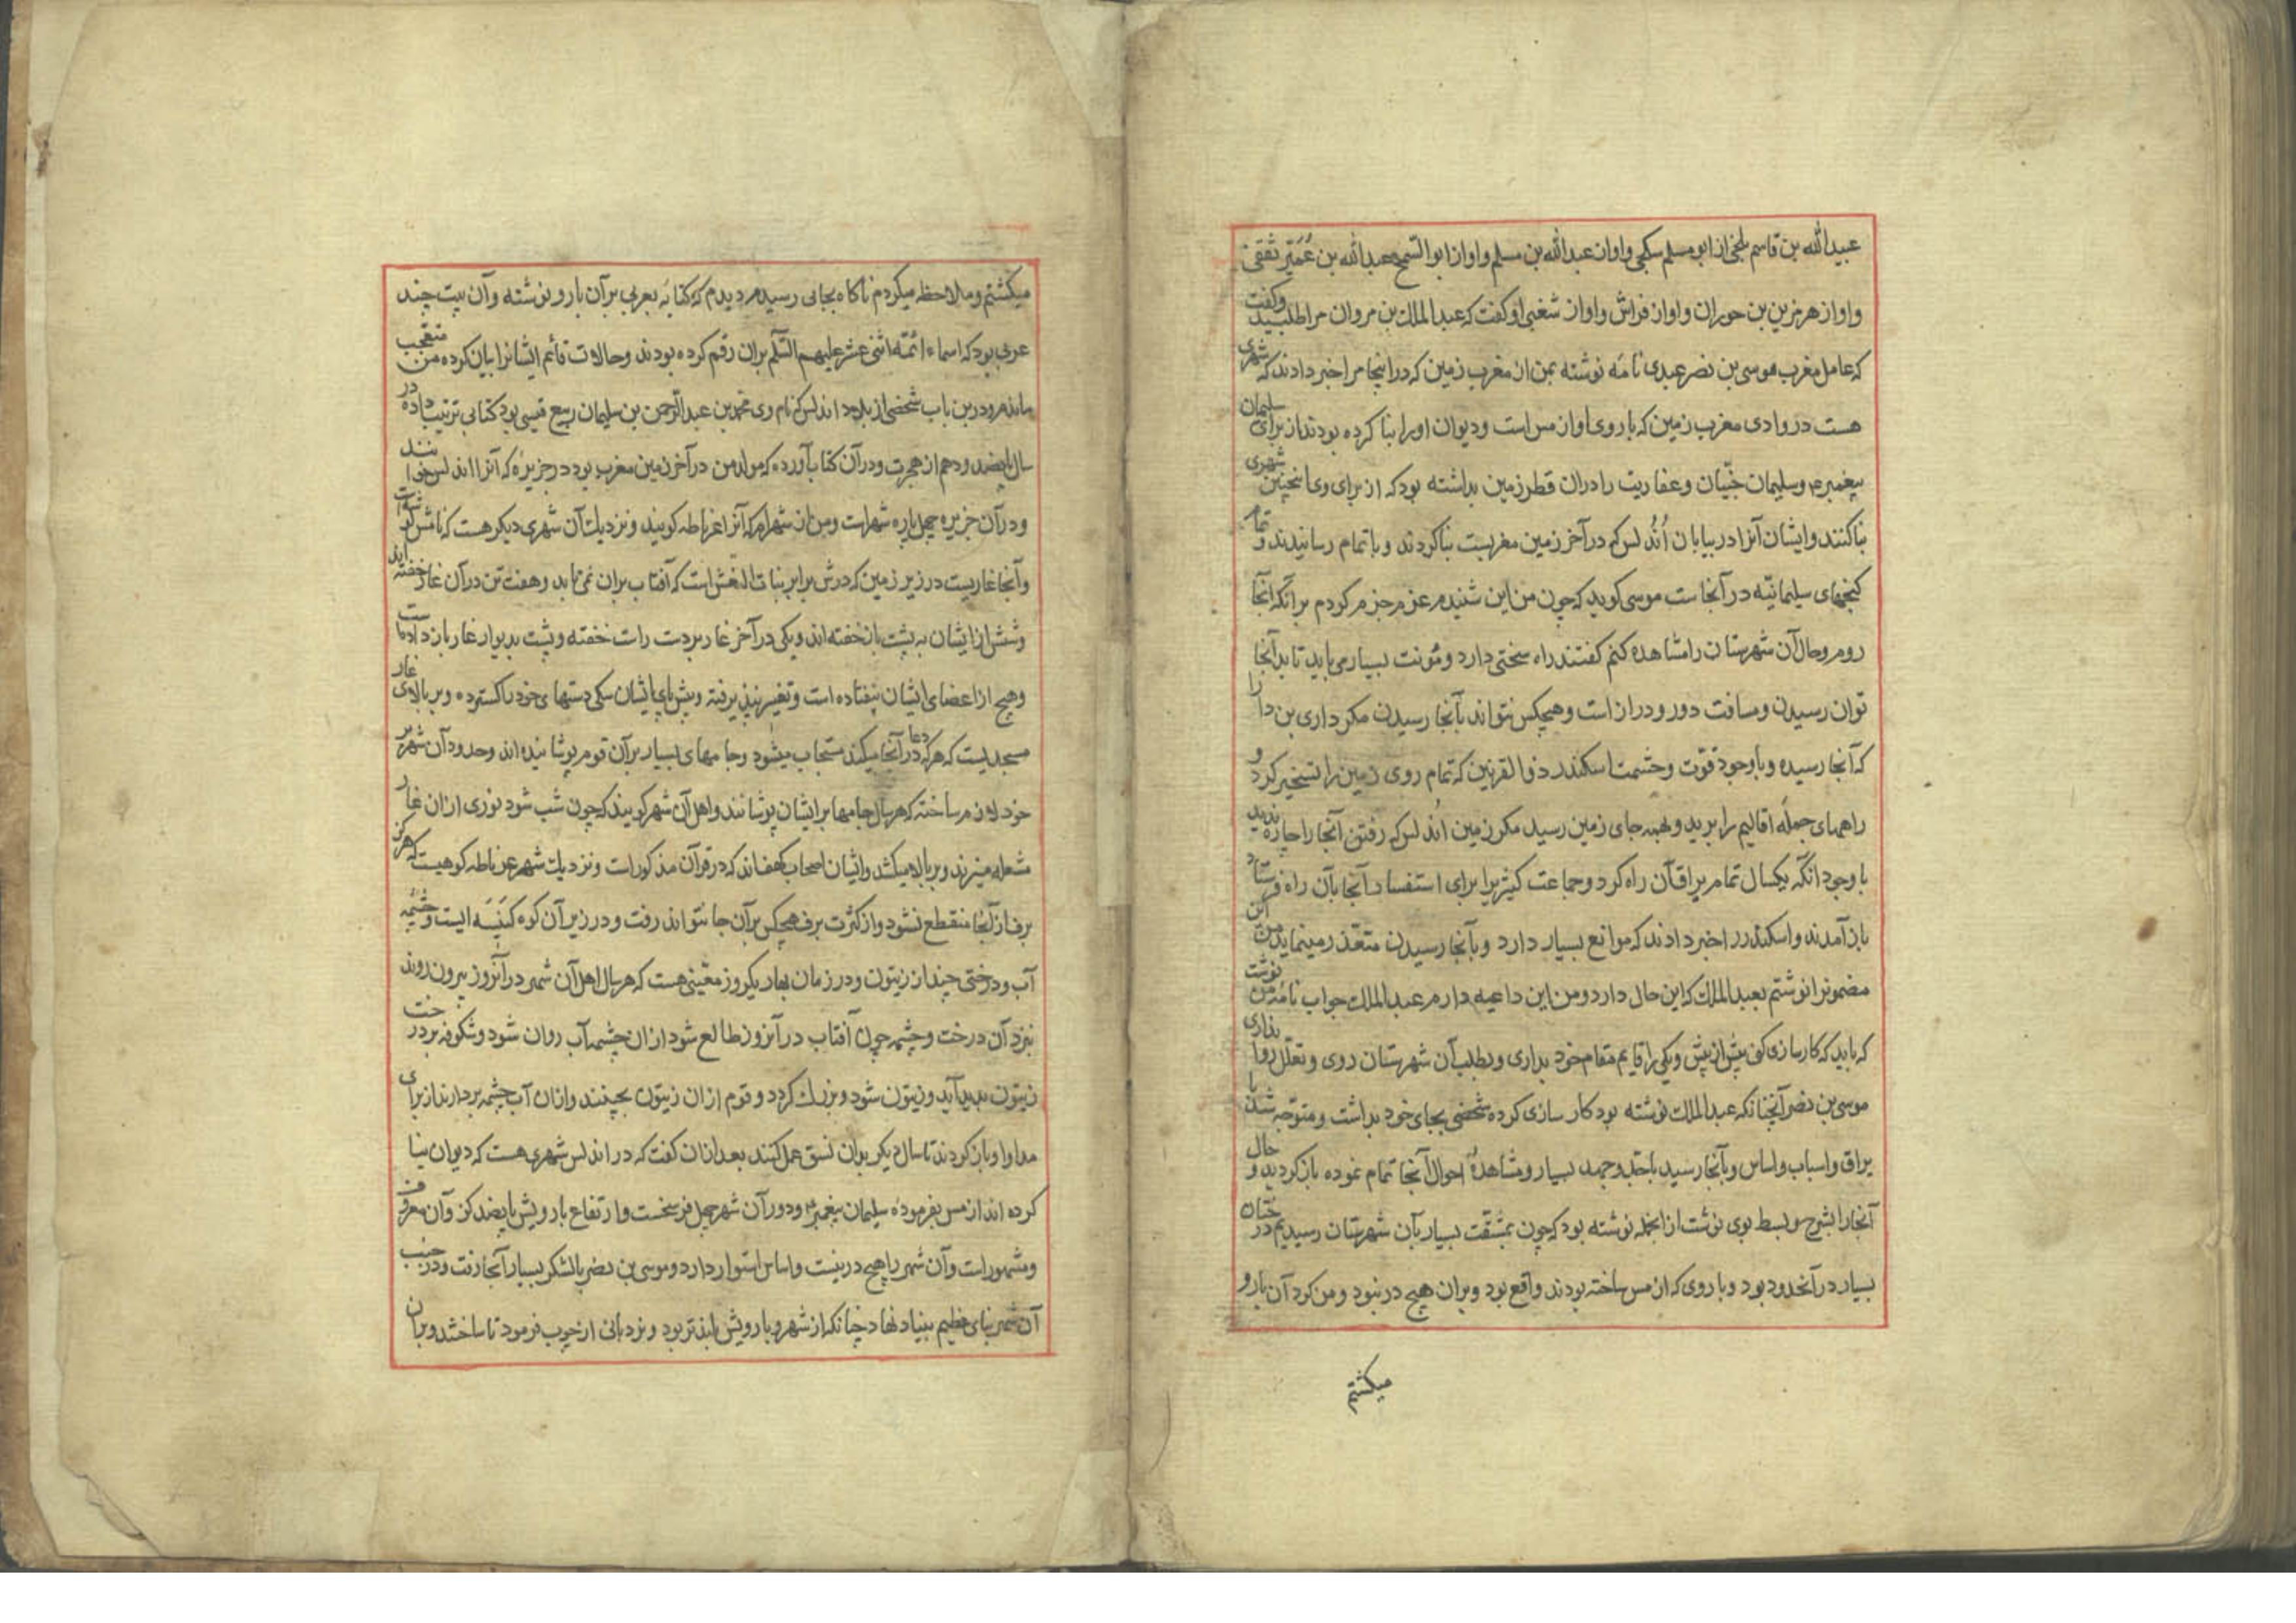 عبیدالله بن قاسم بلخی از ابو مسلم سکجی و او از عبدالله بن مسلم و او از ابو السمح عبدالله بن عُمَیر ثقفی
و او از هرمز بن حوران و او از فراش و او از شعبی او کفت که عبدالملک بن مروان مرا طلبید و کفت
که عامل مغرب موسی بن نضر عبدی نامه نوشته بمن از مغرب زمین که در اینجا مرا خبر دادند که شهری
هست در وادی مغرب زمین که باروی او از مس است و دیوان او را بنا کرده بودند از برای سلیمان
پیغمبر۴ و سلیمان جنّیان و عفاریت را در ان قطر زمین بداشته بود که از برای وی انچنین شهری
بنا کنند و ایشان آنرا در بیابان اُندُلس که در آخر زمین مغربست بنا کردند و باتمام رسانیدند و تمام
کنجهای سلیمانیّه در آنجاست موسی کوید که چون من این شنیدم عزم جزم کردم برانکه آنجا
روم و حال آن شهرستان را مشاهده کنم کفتند راه سختی دارد و مؤنت بسیار می باید تا بدآنجا
توان رسیدن و مسافت دور و دراز است و هیچکس نتواند بآنجا رسیدن مکر داری بن دارا
که آنجا رسیده و باوجود قوّت و حشمت اسکندر ذو القرنین که تمام روی زمین را تسخیر کرد و
راههای جمله اقالیم را برید و بهمه جای زمین رسید مکر زمین اُندُلس که رفتن آنجا را چاره ندید
باوجود انکه یکسال تمام یراق آن راه کرد و جماعت کثیر را برای استفسار آنجا بآن راه فرستاد
باز آمدند و اسکندر را خبر دادند که موانع بسیار دارد و بآنجا رسیدن متعذر مینماید من این
مضمونرا نوشتم بعبدالملک که این حال دارد و من این داعیه دارم عبدالملک جواب نامهٔ من نوشت
که باید که کارسازی کنی بیش از پیش و یکی را قایم مقام خود بداری و بطلب آن شهرستان روی و تعلّل روا نداری
موسی بن نضر آنچنانکه عبدالملک نوشته بود کار سازی کرده شخصی بجای خود بداشت و متوجّه شد با
یراق و اسباب و اساس و بآنجا رسید باجدّ و جهد بسیار و مشاهدهٔ احوال آنجا تمام نموده باز کردید و حال
آنجا را بشرح و بسط بوی نوشت از انجمله نوشته بود که چون بمشقت بسیار بآن شهرستان رسیدیم درختان
بسیار در آنحدود بود و باروی که از مس ساخته بودند واقع بود و بران هیچ در نبود و من کرد آن بارو
میکشتم
میکشتم و ملاحظه میکردم ناکاه بجائی رسیدم دیدم که کتابهٔ بعربی بر آن بارو نوشته و آن بیت چند
عربی بود که اسماء ائمّه اثنی عشر علیهم السّلم بران رقم کرده بودند و حالات قائم ایشانرا بیان کرده من متعجب
ماندم و درین باب شخصی از بلاد اندلس که نام وی محمد بن عبدالرّحمن بن سلیمان ربیع قیسی بود کتابی ترتیب داده در
سال پانصد و دهم از هجرت و در آن کتاب آورده که مولد من در آخر زمین مغرب بود در جزیرهٔ که آنرا اندلس خوانند
و در آن جزیره چهل پاره شهر است و من از شهرام که آنرا غرناطه کویند و نزدیک آن شهری دیکر هست که نامش
و آنجا غاریست در زیر زمین که درش برابر بنات النعش است که آفتاب بران نمی تابد و هفت تن در آن غار خفته اند
و شش از ایشان به پشت باز خفته اند و یکی در آخر غار بر دست راست خفته و پشت بدیوار غار باز داده است
و هیچ از اعضای ایشان نیفتاده است و تغییر نپذیرفته و پیش پای ایشان سکی دستهای خود را کسترده و بر بالای غار
مسجدیست که هر که در آنجا دعا میکند مستجاب میشود و جامهای بسیار بر آن قوم پوشانیده اند و حدود آن شهر بر
خود لازم ساخته که هر سال جامها بر ایشان پوشانند و اهل آن شهر کویند که چون شب شود نوری از ان غار
مشعله میزند و بر بالا میکشد و ایشان اصحاب کهف اند که در قرآن مذکور است و نزدیک شهر غرناطه کوهیست که هرکز
برف از آنجا منقطع نشود و از کثرت برف هیچکس بر آن جا نتواند رفت و در زیر آن کوه کنیسهٔ ایست و چشمه
آب و درختی چند از زیتون و در زمان بهار یکروز معیّنی هست که هر سال اهل آن شهر در آنروز بیرون روند
نزد آن درخت و چشمه چون آفتاب در آنروز طالع شود از ان چشمه آب روان شود و شکوفه بر درخت
زیتون پدید آید و زیتون شود و بزرک کردد و قوم از ان زیتون بچینند و ازان آب چشمه بردارند از برای
مداوا و باز کردند تا سال دیکر بران نسق عمل کنند بعد ازان کفت که در اندلس شهری هست که دیوان بنا
کرده اند از مس بفرمودهٔ سلیمان پیغمبر۴ و دور آن شهر چهل فرسخست و ارتفاع بارویش پانصد کز و آن معروف
و مشهور است و آن شهر را هیچ در نیست و اساس استوار دارد و موسی بن نضر با لشکر بسیار آنجا رفت و در جنب
آن شهر بنای عظیم بنیاد نهاد چنانکه از شهر و بارویش بلندتر بود و نردبانی از چوب فرمود تا ساختند و بران